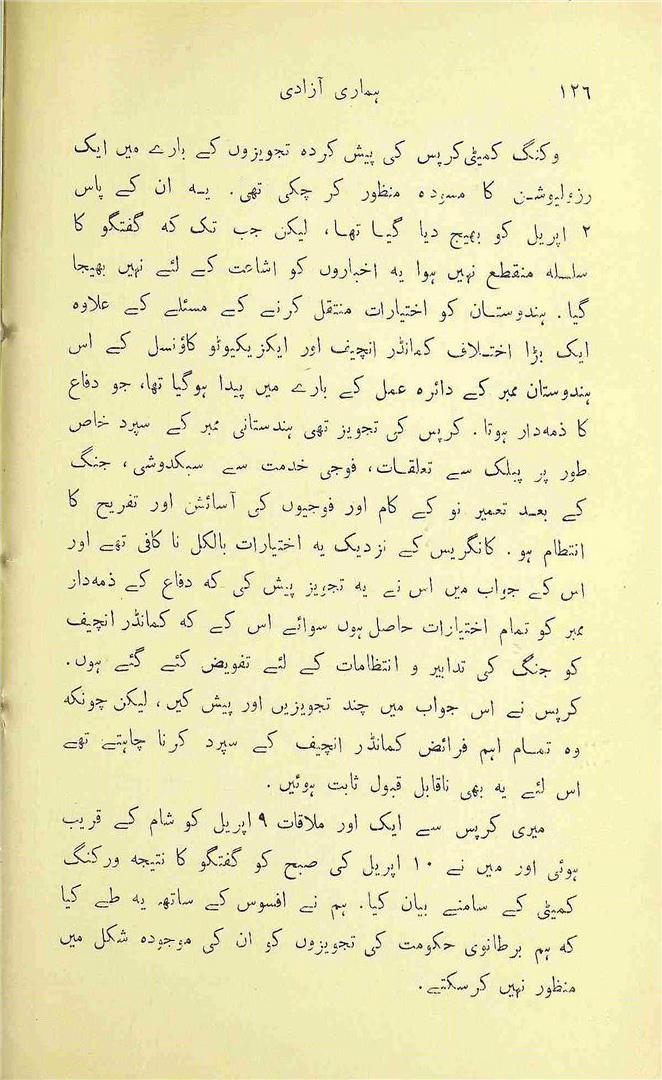 ١٢٦ ہماری آزادی
وکنگ کمیٹی کرپس کی پیش کردہ تجویزوں کے بارے میں ایک
رزولیوشن کا مسودہ منظور کر چکی تھی. یہ ان کے پاس
٢ اپریل کو بھیج دیا گیا تھا، لیکن جب تک کہ گفتگو کا
سلسلہ منقطع نہیں ہوا یہ اخباروں کو اشاعت کے لئے نہیں بھیجا
گیا. ہندوستان کو اختیارات منتقل کرنے کے مسئلے کے علاوہ
ایک بڑا اختلاف کمانڈر انچیف اور ایکزیکیوٹو کاؤنسل کے اس
ہندوستان ممبر کے دائرہ عمل کے بارے میں پیدا ہوگیا تھا، جو دفاع
کا ذمہدار ہوتا. کرپس کی تجویز تھی ہندستانی ممبر کے سپرد خاص
طور پر پبلک سے تعلقات، فوجی خدمت سے سبکدوشی، جنگ
کے بعد تعمیر نو کے کام اور فوجیوں کی آسائش اور تفریح کا
انتظام ہو. کانگریس کے نزدیک یہ اختیارات بالکل نا کافی تھے اور
اس کے جواب میں اس نے یہ تجویز پیش کی کہ دفاع کے ذمہدار
ممبر کو تمام اختیارات حاصل ہوں سوائے اس کے کہ کمانڈر انچیف
کو جنگ کی تدابیر و انتظامات کے لئے تفویض کئے گئے ہوں.
کرپس نے اس جواب میں چند تجویزیں اور پیش کیں، لیکن چونکہ
وہ تمام اہم فرائض کمانڈر انچیف کے سپرد کرنا چاہتے تھے
اس لئے یہ بھی ناقابل قبول ثابت ہوئیں.
میری کرپس سے ایک اور ملاقات ٩ اپریل کو شام کے قریب
ہوئی اور میں نے ١٠ اپریل کی صبح کو گفتگو کا نتیجہ ورکنگ
کمیٹی کے سامنے بیان کیا. ہم نے افسوس کے ساتھ یہ طے کیا
کہ ہم برطانوی حکومت کی تجویزوں کو ان کی موجودہ شکل میں
منظور نہیں کرسکتے.